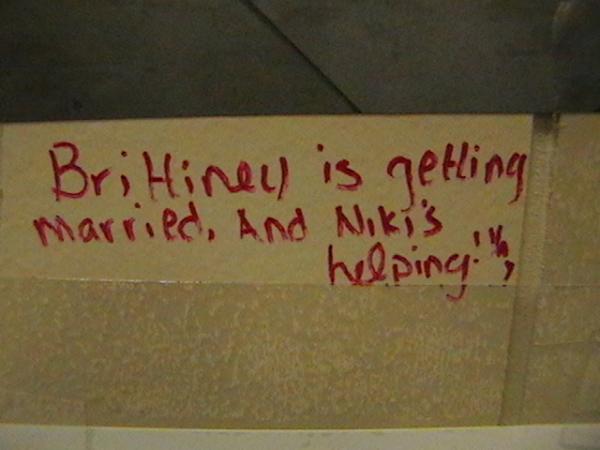 Brittiney is getting
married. And Niki's
helping!